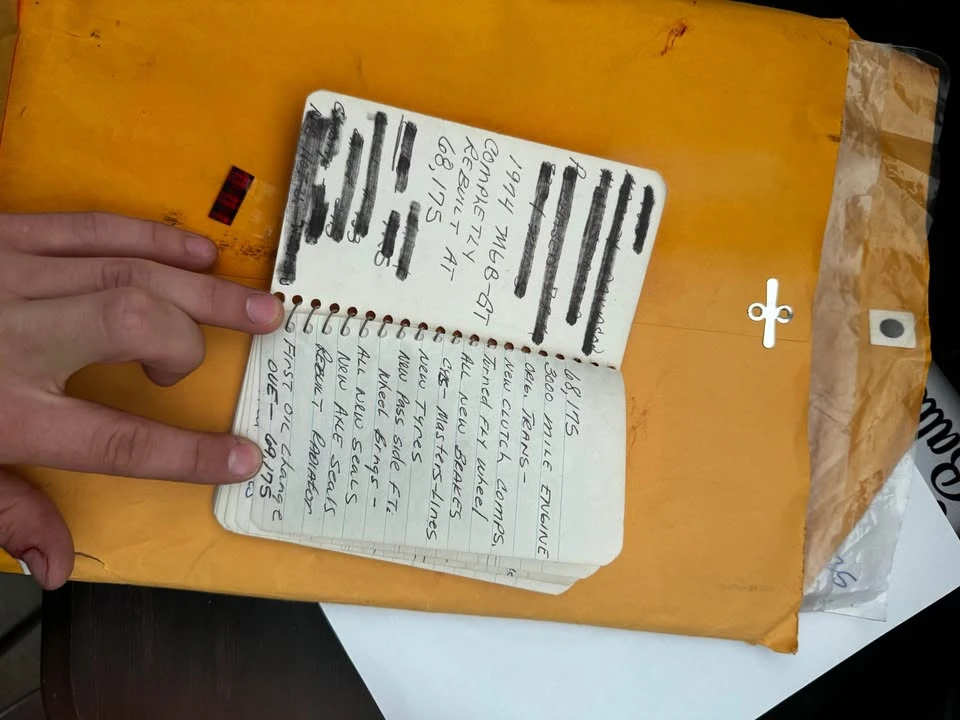 1974 MGB-GT
COMPLETLY
REBUILT AT
68,175
68,175
3000 MILE ENGINE
ORIG. TRANS-
NEW CLUTCH COMPS.
Turned FLY WHEEL
ALL NEW BRAKES
CYLS- MASTERS-LINES
NEW TYRES
NEW PASS SIDE FT.
WHEEL BRNGS-
ALL NEW SEALS
NEW AXLE SEALS
REBUILT RADIATOR
FIRST OIL CHANGE
DUE- 69,175